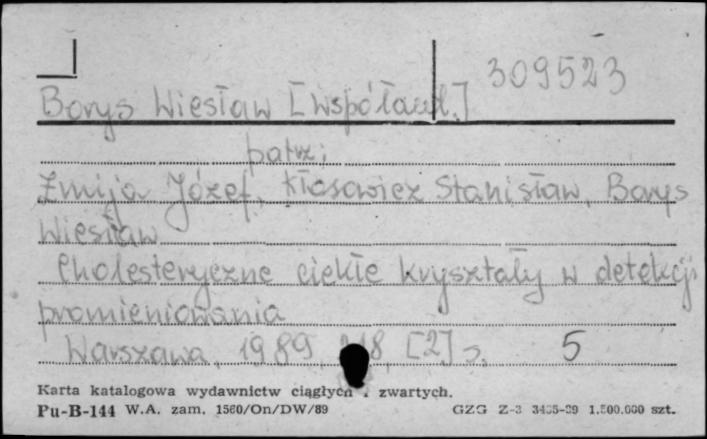 309523
Borys Wiesław [współaut.]
patrz:
Żmija Józef, Kłosowicz Stanisław, Borys
Wiesław
Cholesteryczne ciekłe kryształy w detekcji
promieniowania
Warszawa, 1989, [2] s. 5
Karta katalogowa wydawnictw ciągłych i zwartych.
Pu-B-144 W.A. zam. 1560/On/DW/89 GZG Z-3 1.500.000 szt.